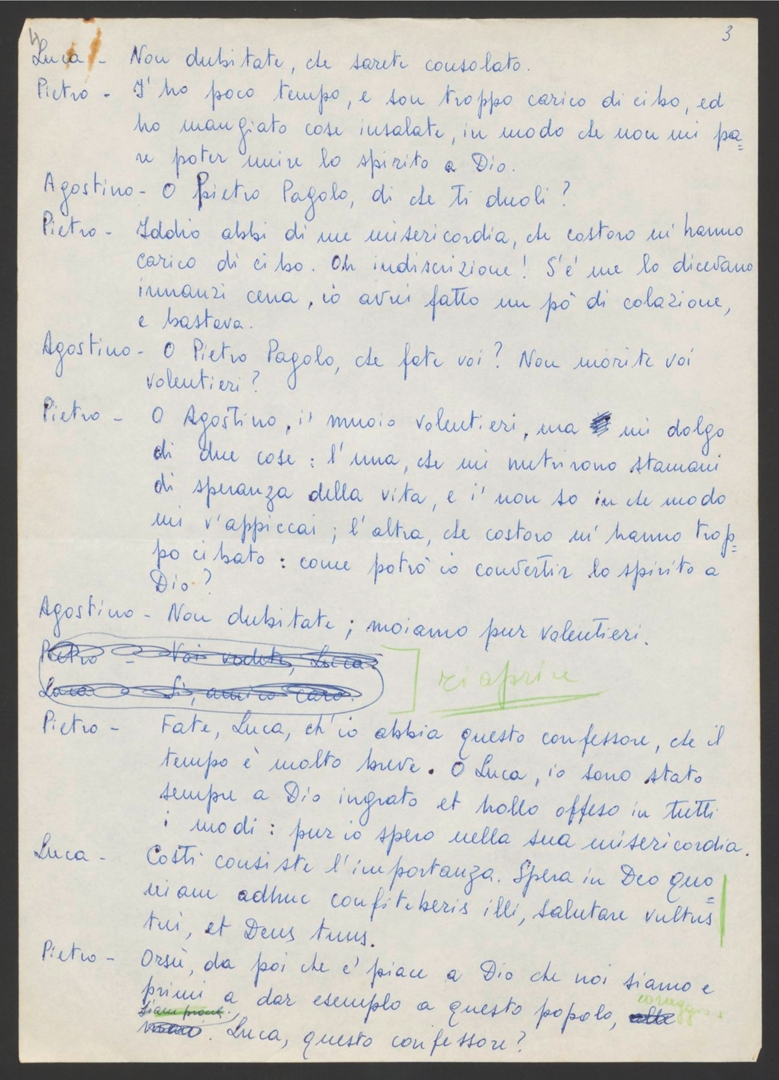 3
Luca - Non dubitate, che sarete consolato.
Pietro - I' ho poco tempo, e son troppo carico di cibo, ed
ho mangiato cose insalate, in modo che non mi pa=
re poter unire lo spirito a Dio.
Agostino - O Pietro Pagolo, di che ti duoli?
Pietro - Iddio abbi di me misericordia, che costoro m'hanno
carico di cibo. Oh indiscrizione! S'é me lo dicevano
innanzi cena, io avrei fatto un pò di colazione,
e bastava.
Agostino - O Pietro Pagolo, che fate voi? Non morite voi
volentieri?
Pietro - O Agostino, i' muoio volentieri, ma mi dolgo
di due cose: l'una, che mi nutrirono stamani
di speranza della vita, e i' non so in che modo
mi v'appiccai; l'altra, che costoro m'hanno trop=
po cibato: come potrò io convertir lo spirito a
Dio?
Agostino - Non dubitate; moiamo pur valentieri.
Pietro - Voi vedete, Luca.
Luca - Sì, amico caro.
riaprire
Pietro - Fate, Luca, ch'io abbia questo confessore, che il
tempo è molto breve. O Luca, io sono stato
sempre a Dio ingrato et hollo offeso in tutti
i modi: pur io spero nella sua misericordia.
Luca - Costì consiste l'importanza. Spera in Deo quo=
niam adhuc confiteberis illi, salutare vultus
tui, et Deus tuus.
Pietro - Orsù, da poi che e' piace a Dio che noi siamo e
primi a dar esempio a questo popolo,
siam pronti.
Luca, questo confessore?